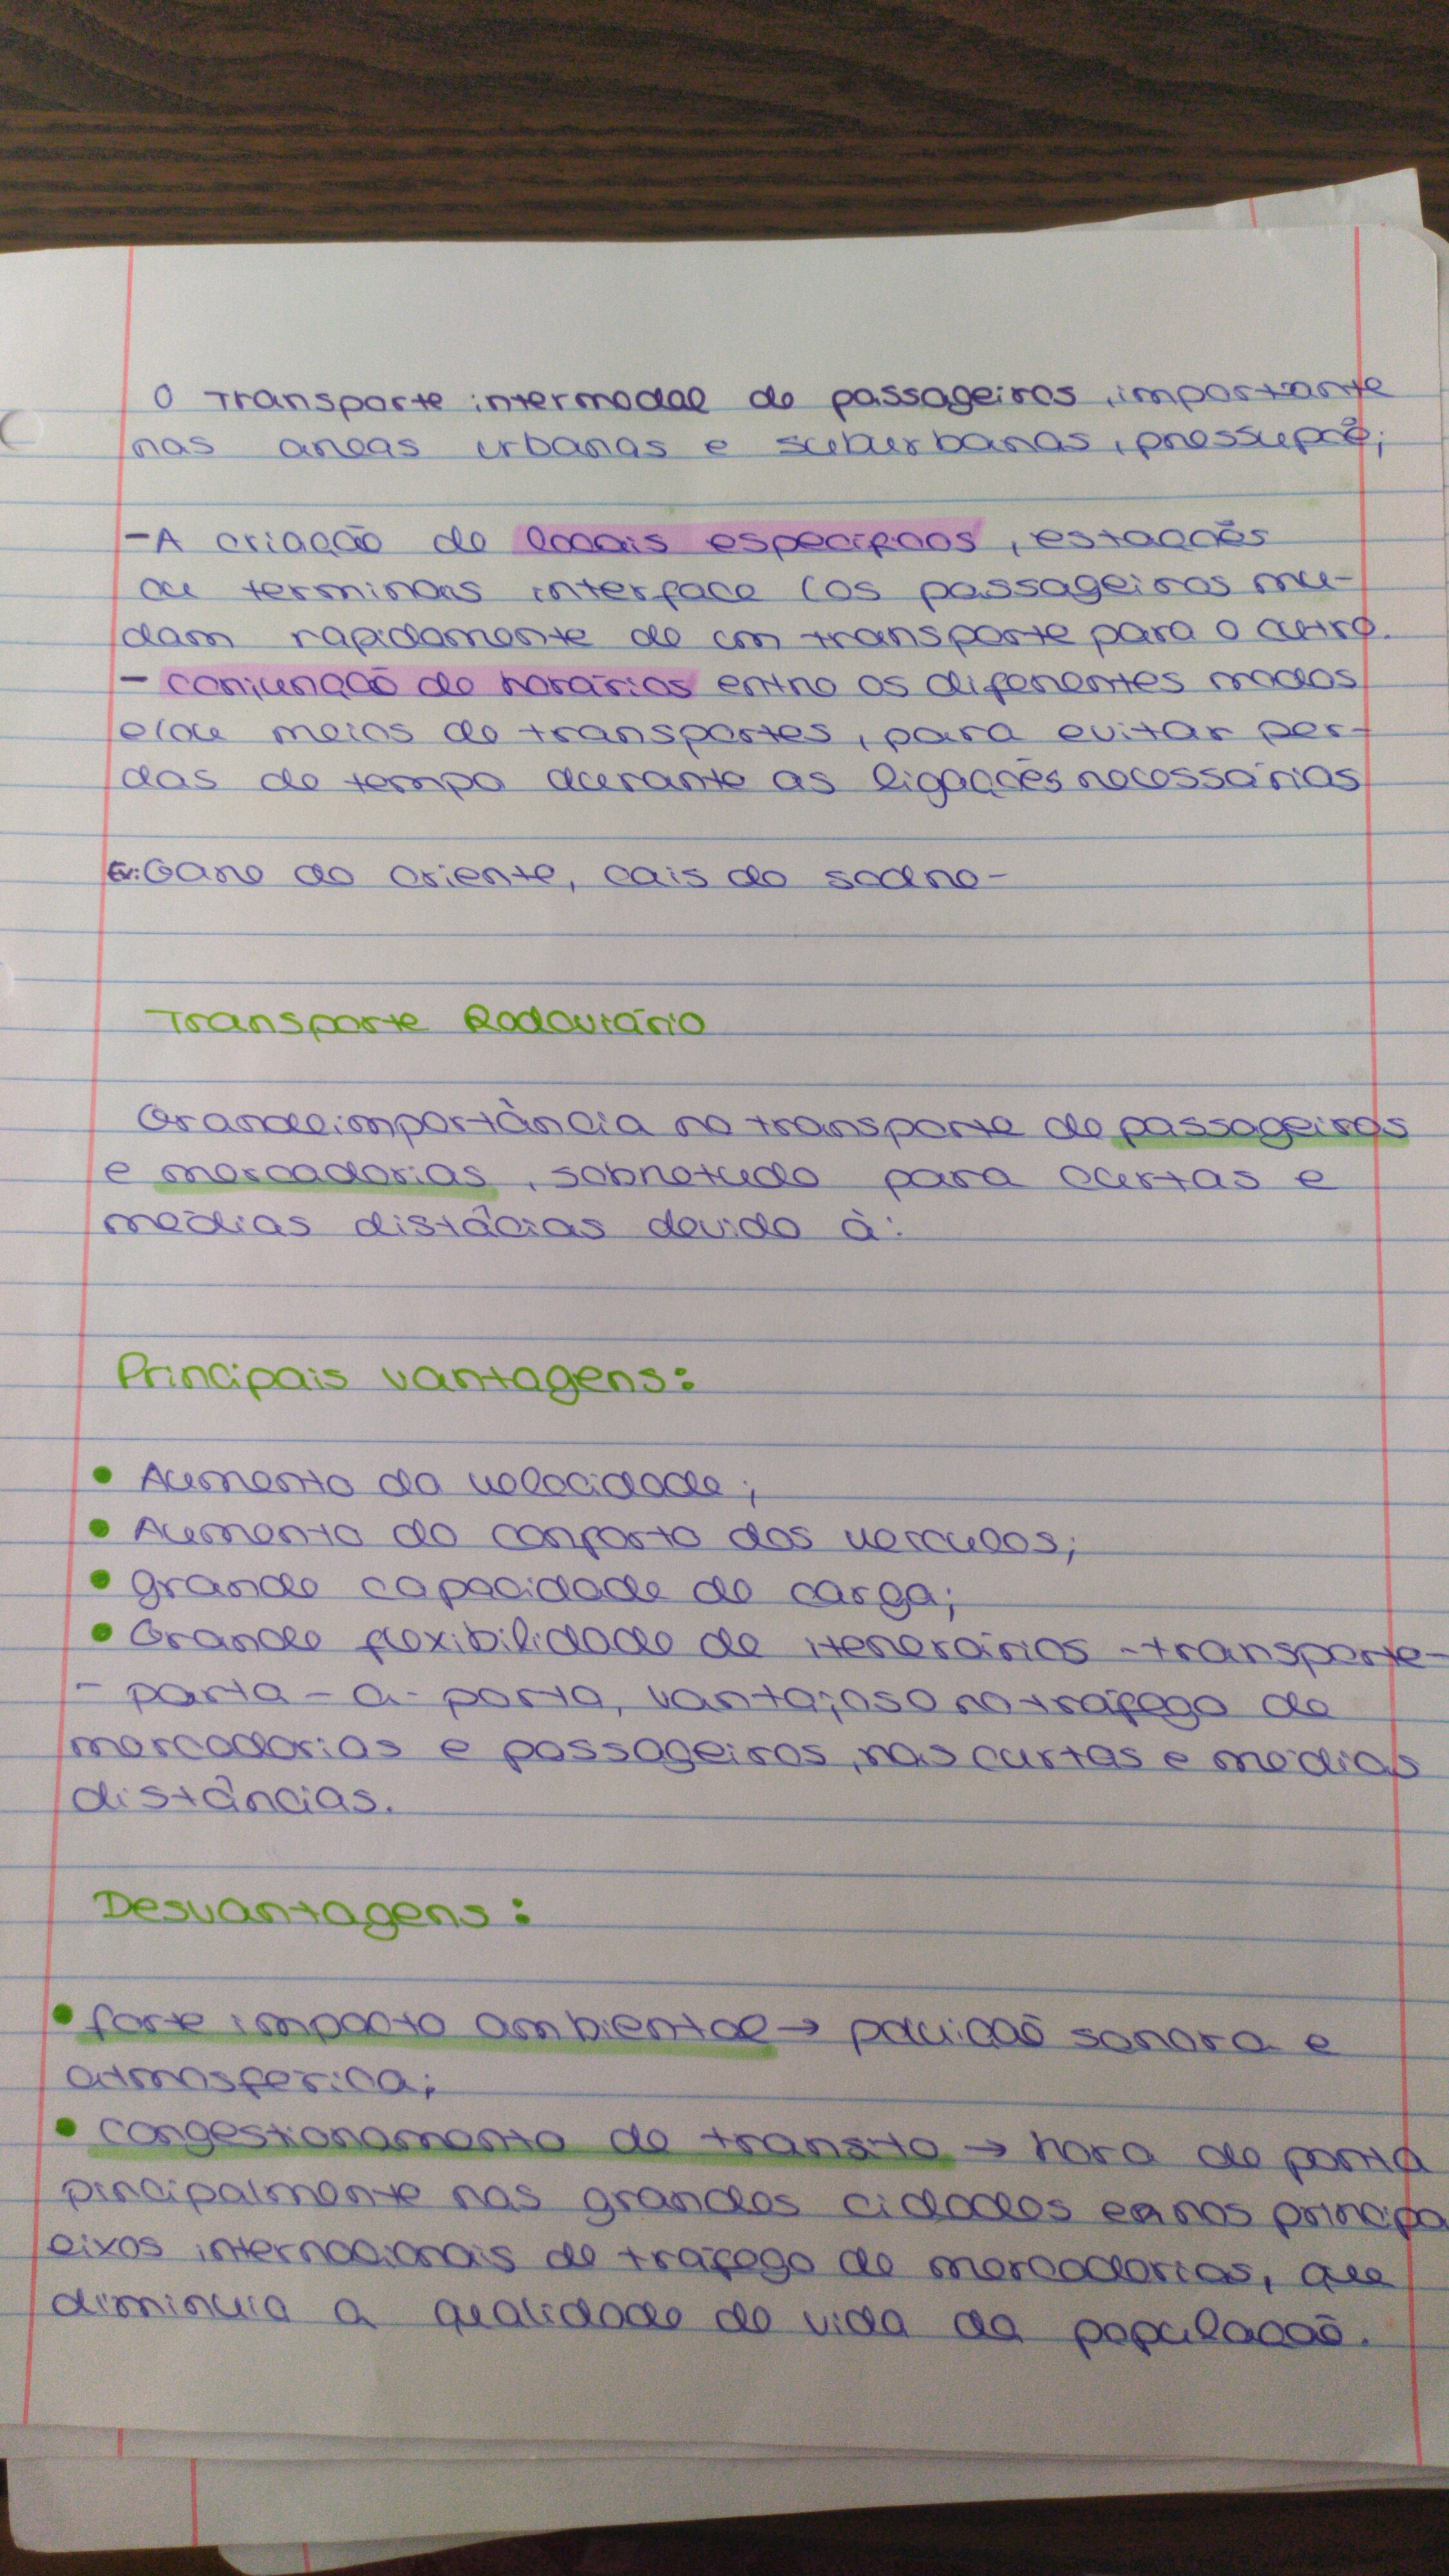 O Transporte intermodal de passageiros, importante
nas areas urbanas e suburbanas, pressupõe;
-A criação de locais especificos, estações
ou terminais interface (os passageiros mu-
dam rapidamente de um transporte para o outro.
- conjunação de horários entre os diferentes modos
e/ou meios de transportes, para evitar per-
das de tempo durante as ligações necessárias
Ex: Gare do oriente, cais do sodre-
Transporte Rodoviário
Grande importância no transporte de passageiros
e mercadorias, sobretudo para curtas e
médias distâcias devido à:
Principais vantagens:
• Aumento da velocidade;
• Aumento do conforto dos veiculos;
• grande capacidade de carga;
• Grande flexibilidade de itenerários - transporte-
- porta-a-porta, vantajoso no tráfego de
mercadorias e passageiros, nas curtas e médias
distâncias.
Desvantagens:
• forte impacto ambiental → poluição sonora e
atmosferica;
• congestionamento de transito → hora de ponta
pincipalmente nas grandes cidades e nos principa
eixos internacionais de tráfego de mercadorias, que
diminuia a qualidade de vida da população.